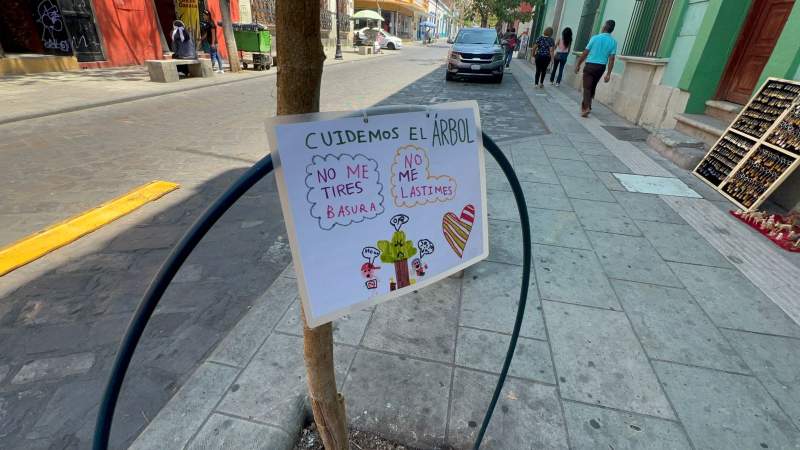 CUIDEMOS EL ÁRBOL
NO ME
TIRES
BASURA
NO
ME
LASTIMES